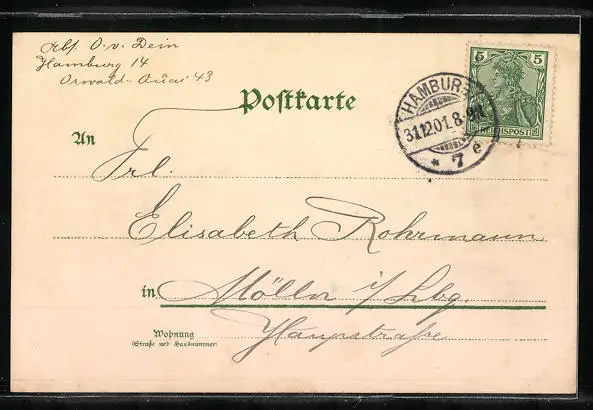 Abs. O. v. Dein
Hamburg 14
Oswald-Quai 43
Postkarte
An
Frl.
Elisabeth Rohrmann
in Mölln i/Lbg.
Wohnung
(Straße und Hausnummer)
Haupstraße
HAMBURG
31.12.01.8-9N.
* 7 e
5 5
REICHSPOST